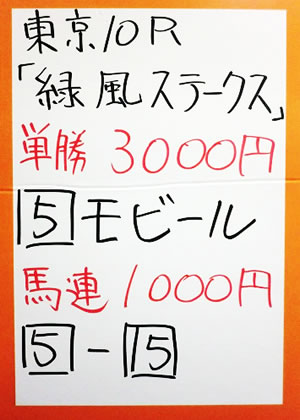 東京10R
「緑風ステークス」
単勝 3000円
5モビール
馬連 1000円
5-15